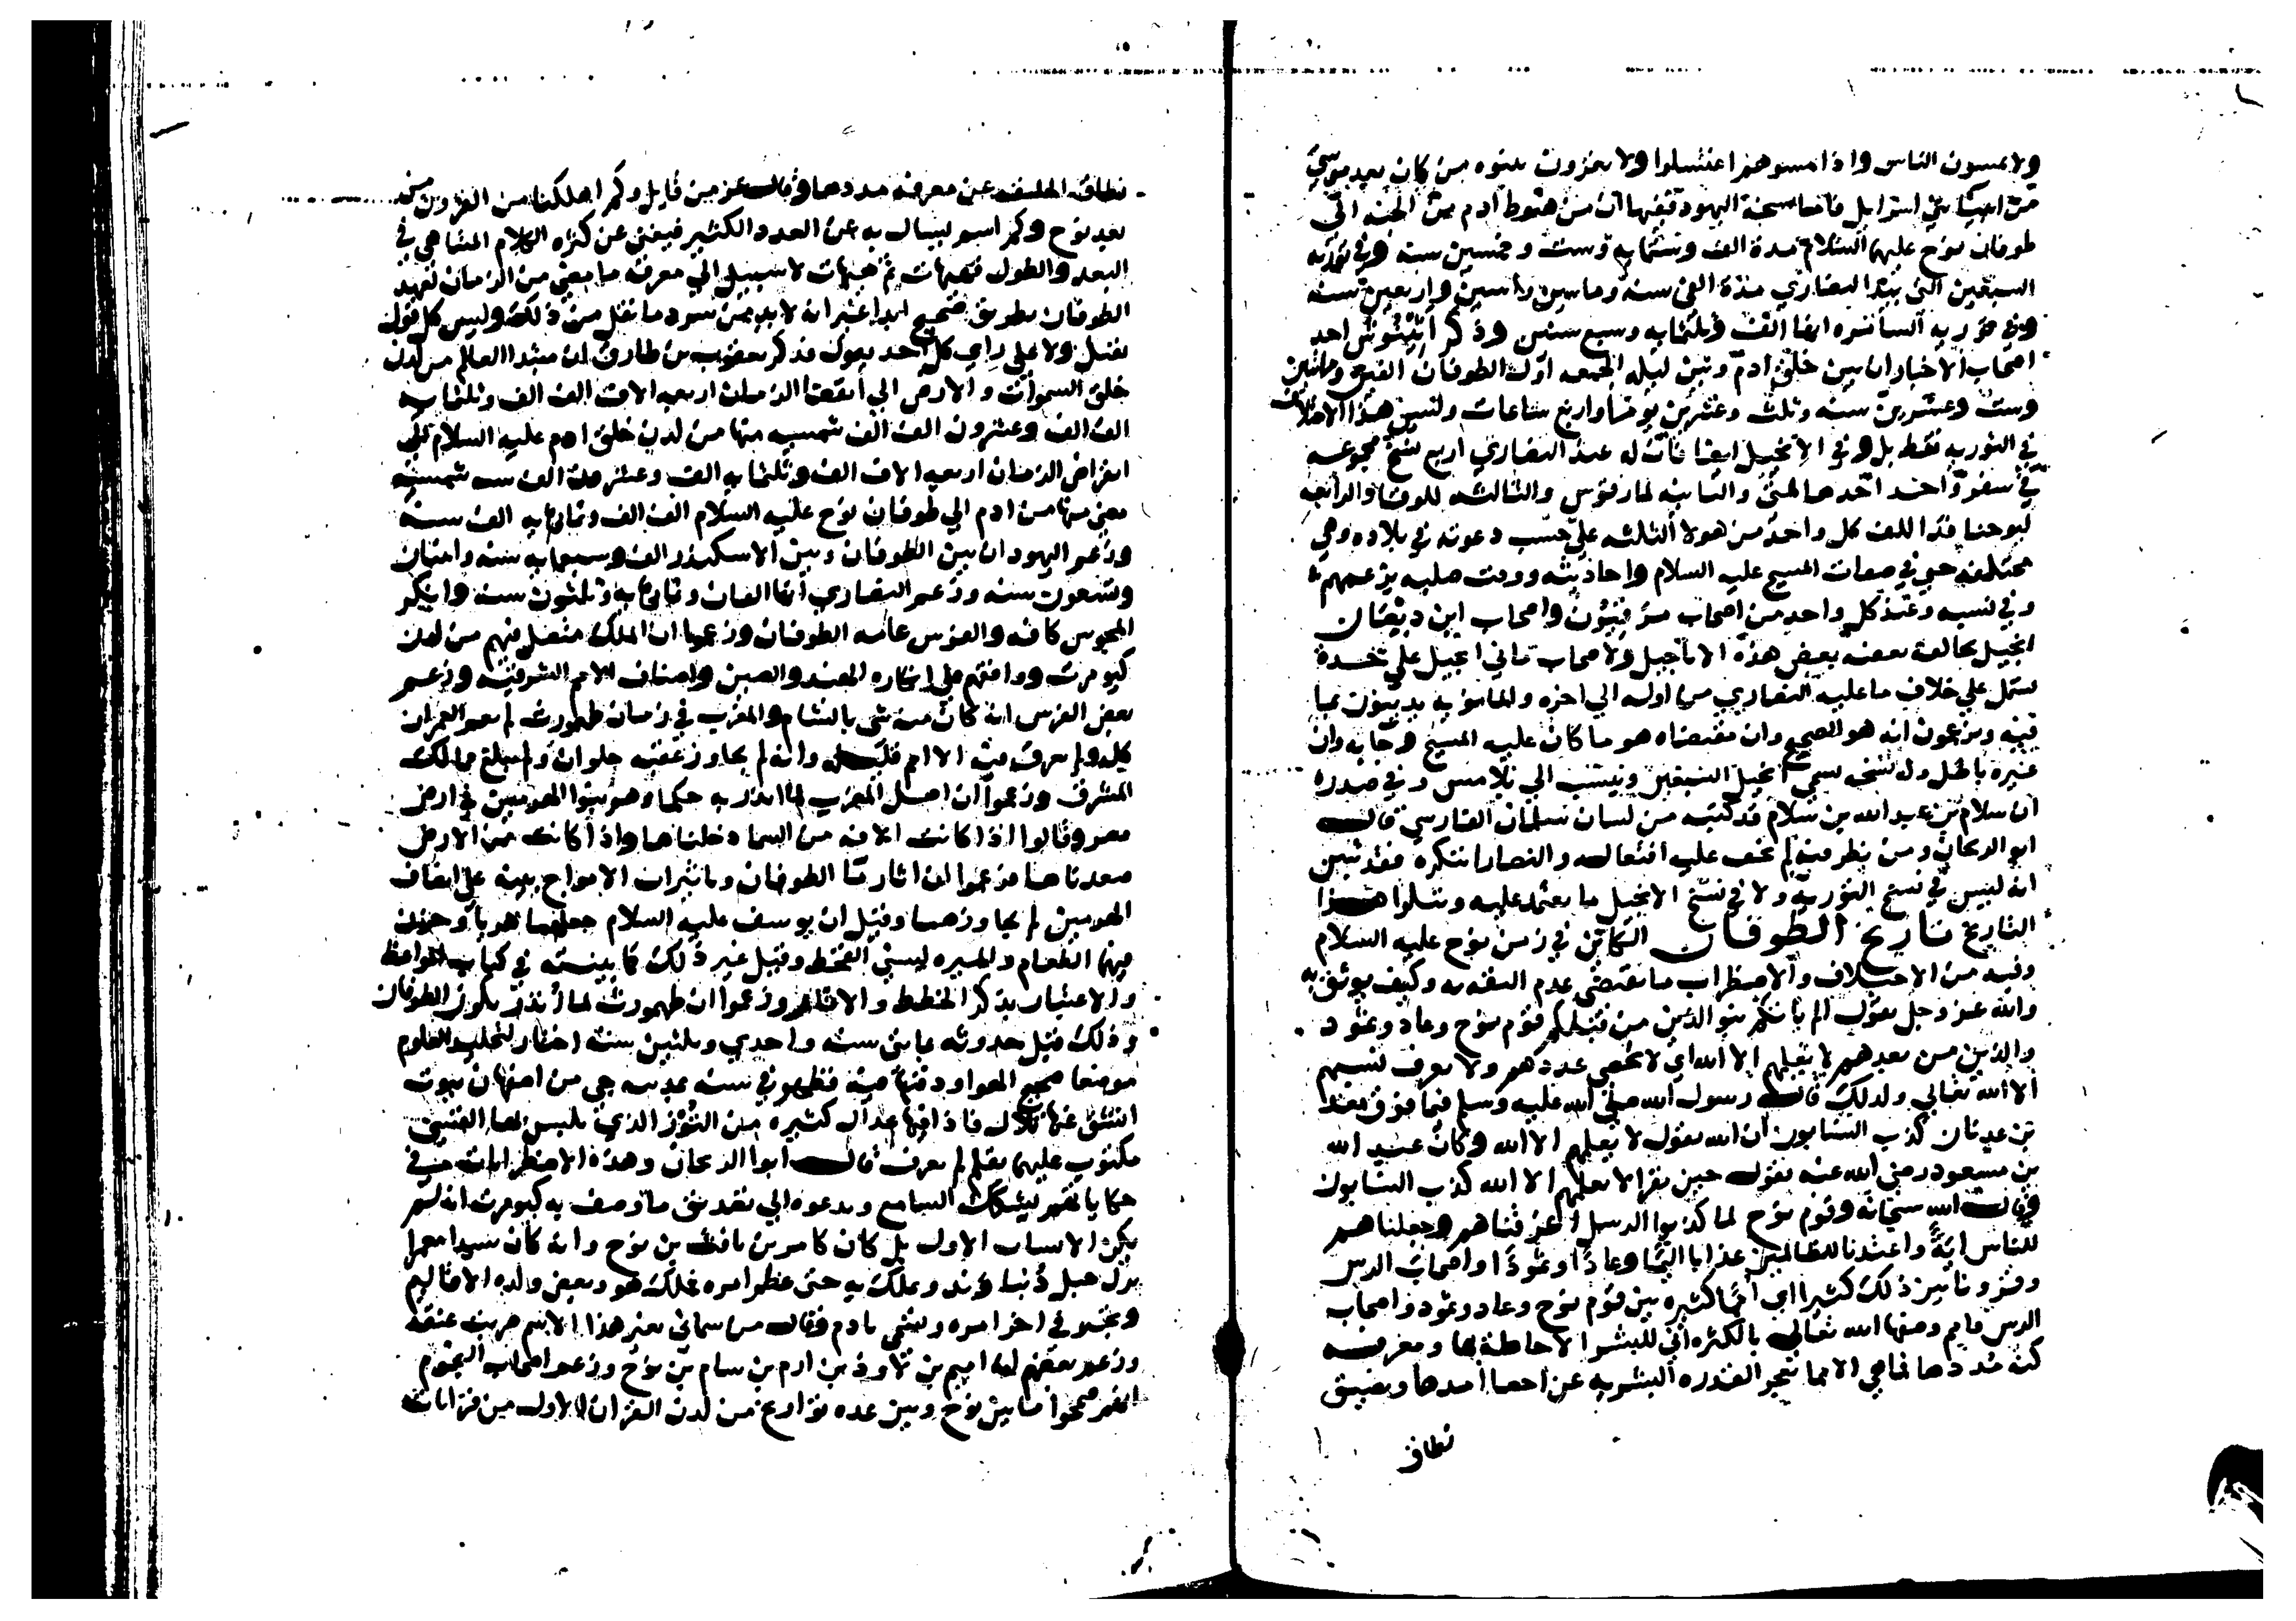 ولا يمسون الناس واذا مسوهم اغتسلوا ولا يعترفون بنبوه من كان بعد موسى
من انبيا بني اسرايل فاما نسخة اليهود ففيها ان من هبوط ادم من الجنه الى
طوفان نوح عليهما السلام مدة الف وستمايه وست وخمسين سنه وفي توريه
السبعين التي بيد النصاري مدة الفي سنه ومايتين واثنين واربعين سنه
وفي توريه السامره انها الف وثلثمايه وسبع سنين وذكر انيتنوش احد
اصحاب الاخبار ان بين خلق ادم وبين ليله الجمعه اول الطوفان الفين ومائتين
وست وعشرين سنه وثلث وعشرين يوما واربع ساعات وليس هذا الاختلاف
في التوريه فقط بل وفي الانجيل ايضا فان له عند النصاري اربع نسخ مجموعه
في سفر واحد احدها لمتي والثانيه لمارقوس والثالثه للوقا والرابعه
ليوحنا قد الف كل واحد من هولا الثلثه علي حسب دعوته في بلاده وهي
مختلفه حتي في صفات المسيح عليه السلام واحاديثه ووقت صلبه بزعمهم
وفي نسبه وعند كل واحد من اصحاب مرقيون واصحاب ابن ديصان
انجيل يخالف بعضه بعض هذه الاناجيل ولاصحاب ماني انجيل علي حده
يشتمل علي خلاف ما عليه النصاري من اوله الي اخره والمانويه يدينون بما
فيه ويزعمون انه هو الصحيح وان مقتضاه هو ما كان عليه المسيح وجا به وان
غيره باطل وله نسخه تسمى انجيل السبعين وينسب الي تلامس وفي صدره
ان سلام بن عبد الله بن سلام قد كتبه من لسان سلمان الفارسي قال
ابو الريحان ومن نظر فيه لم يخف عليه افتعاله والنصارا تنكره فقد تبين
انه ليس في نسخ التوريه ولا في نسخ الانجيل ما يعتمد عليه ويتلوا هذا
التاريخ تاريخ الطوفان الكاين في زمن نوح عليه السلام
وفيه من الاختلاف والاضطراب ما يقتضي عدم الثقه به وكيف يوثق به
والله عز وجل يقول الم يأتكم نبو الذين من قبلكم قوم نوح وعاد وثمود
والذين من بعدهم لا يعلمهم الا الله اي لا يحصي عددهم ولا يعرف نسبهم
الا الله تعالي ولذلك قال رسول الله صلى الله عليه وسلم فيما فوق معد
بن عدنان كذب النسابون ان الله يقول لا يعلمهم الا الله وكان عبد الله
بن مسعود رضي الله عنه يقول حين يقرا لا يعلمهم الا الله كذب النسابون
وقال الله سبحانه وقوم نوح لما كذبوا الرسل اغرقناهم وجعلناهم
للناس اية واعتدنا للظالمين عذابا اليما وعادا وثمودا واصحاب الرس
وقرونا بين ذلك كثيرا اي امما كثيره بين قوم نوح وعاد وثمود واصحاب
الرس وصفها الله تعالى بالكثره اني للبشر الاحاطة بها ومعرفه
كنه مددها فما هي الا مما تعجز القدره البشريه عن احصا امدها ويضيق
نطاق
نطاق الخلق عن معرفه مددها وقال عز من قايل وكم اهلكنا من القرون من
بعد نوح وكم اسم ليسال به عن العدد الكثير فيغني عن كثره الكلام المتناهي في
البعد والطول فهيهات ثم هيهات لا سبيل الي معرفه ما مضي من الزمان لعهد
الطوفان بطريق صحيح ابدا غير انه لابد من سرد ما نقل من ذلك وليس كل قول
يقبل ولا على راي كل احد يعول فذكر يعقوب بن طارق ان مبتدا العالم من لدن
خلق السموات والارض الي انقضا الزمان اربعه الاف الف الف وثلثمايه
الف الف وعشرون الف الف شمسيه منها من لدن خلق ادم عليه السلام الي
انقراض الزمان اربعه الاف الف وثلثمايه الف وعشرون الف سنه شمسيه
مضي منها من ادم الي طوفان نوح عليه السلام الف الف وثمان مايه الف سنه
وزعم اليهود ان بين الطوفان وبين الاسكندر الف وسبعمايه سنه واثنتان
وتسعون سنه وزعم النصاري انها الفان وثمان مايه وثلثون سنه وانكر
المجوس كافه والفرس عامه الطوفان وزعموا ان الملك متصل فيهم من لدن
كيومرت ووافقهم علي انكاره الهند والصين واصناف الامم الشرقيه وزعم
بعض الفرس انه كان منه شي بالشام والمغرب في زمان طهمورث لم يعم العمران
كله ولم يعرف فيه الا امم قليله وانه لم يجاوز عقبه حلوان ولم يبلغ ممالك
المشرق وزعموا ان اهل المغرب لما انذر به حكماوهم بنوا الهرمين في ارض
مصر وقالوا اذا كانت الافه من السما دخلناها واذا كانت من الارض
صعدناها وزعموا ان اثار ما الطوفان وتاثيرات الامواج بينه علي انصاف
الهرمين لم يجاوزهما وقيل ان يوسف عليه السلام جعلهما هريا وخزن
فيها الطعام والميره لسني القحط وقيل غير ذلك كما بينته في كتاب المواعظ
والاعتبار بذكر الخطط والاثار وزعموا ان طهمورث لما أنذر بكون الطوفان
وذلك قبل حدوثه بمايتي سنه واحدي وثلثين سنة اختار لكتب العلوم
موضعا صحيح الهوا ودفنها فيه فظهر في سنه بمدينه جي من اصفهان بيوت
انشق عنها تلال فاذا فيها اعدال كثيره من التوز الذي تلبس بها القسي
مكتوب عليها بقلم لم يعرف قال ابوا الريحان وهذه الاضطرابات في
حكاياتهم تشكك السامع وتدعوه الي تصديق ما وصف به كيومرت انه لم
يكن الانسان الاول بل كان كامر بن يافث بن نوح وانه كان سيدا معمرا
نزل جبل دنباوند وتملك به حتى عظم امره فملك هو وبعض ولده الاقاليم
وتجبر في اخر امره وتسمى بادم وقال من سماني بغير هذا الاسم ضربت عنقه
وزعم بعضهم انه اميم بن لاوذ بن ارم بن سام بن نوح وزعم اصحاب النجوم
انهم صححوا ما بين نوح وبين عده تواريخ من لدن القران الاول من قرانات